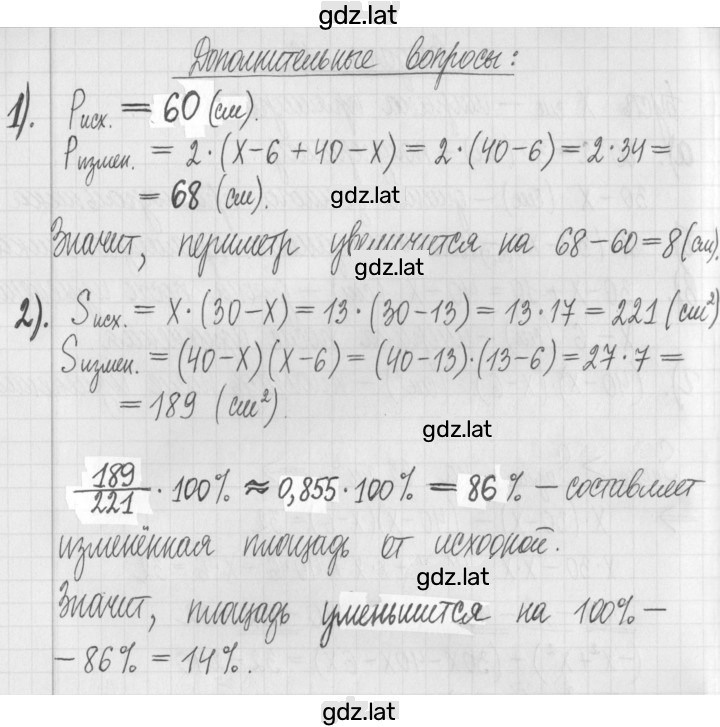 gdz.lat
Дополнительные вопросы:
1). Pисх. = 60 (см).
Pизмен. = 2·(x-6+40-x) = 2·(40-6) = 2·34 =
= 68 (см).
gdz.lat
Значит, периметр увеличится на 68-60=8(см).
gdz.lat
2). Sисх. = x·(30-x) = 13·(30-13) = 13·17 = 221 (см²)
Sизмен. = (40-x)(x-6) = (40-13)·(13-6) = 27·7 =
= 189 (см²).
gdz.lat
189/221 · 100% ≈ 0,855·100% = 86% – составляет
изменённая площадь от исходной.
gdz.lat
Значит, площадь уменьшится на 100% -
- 86% = 14%.
gdz.lat